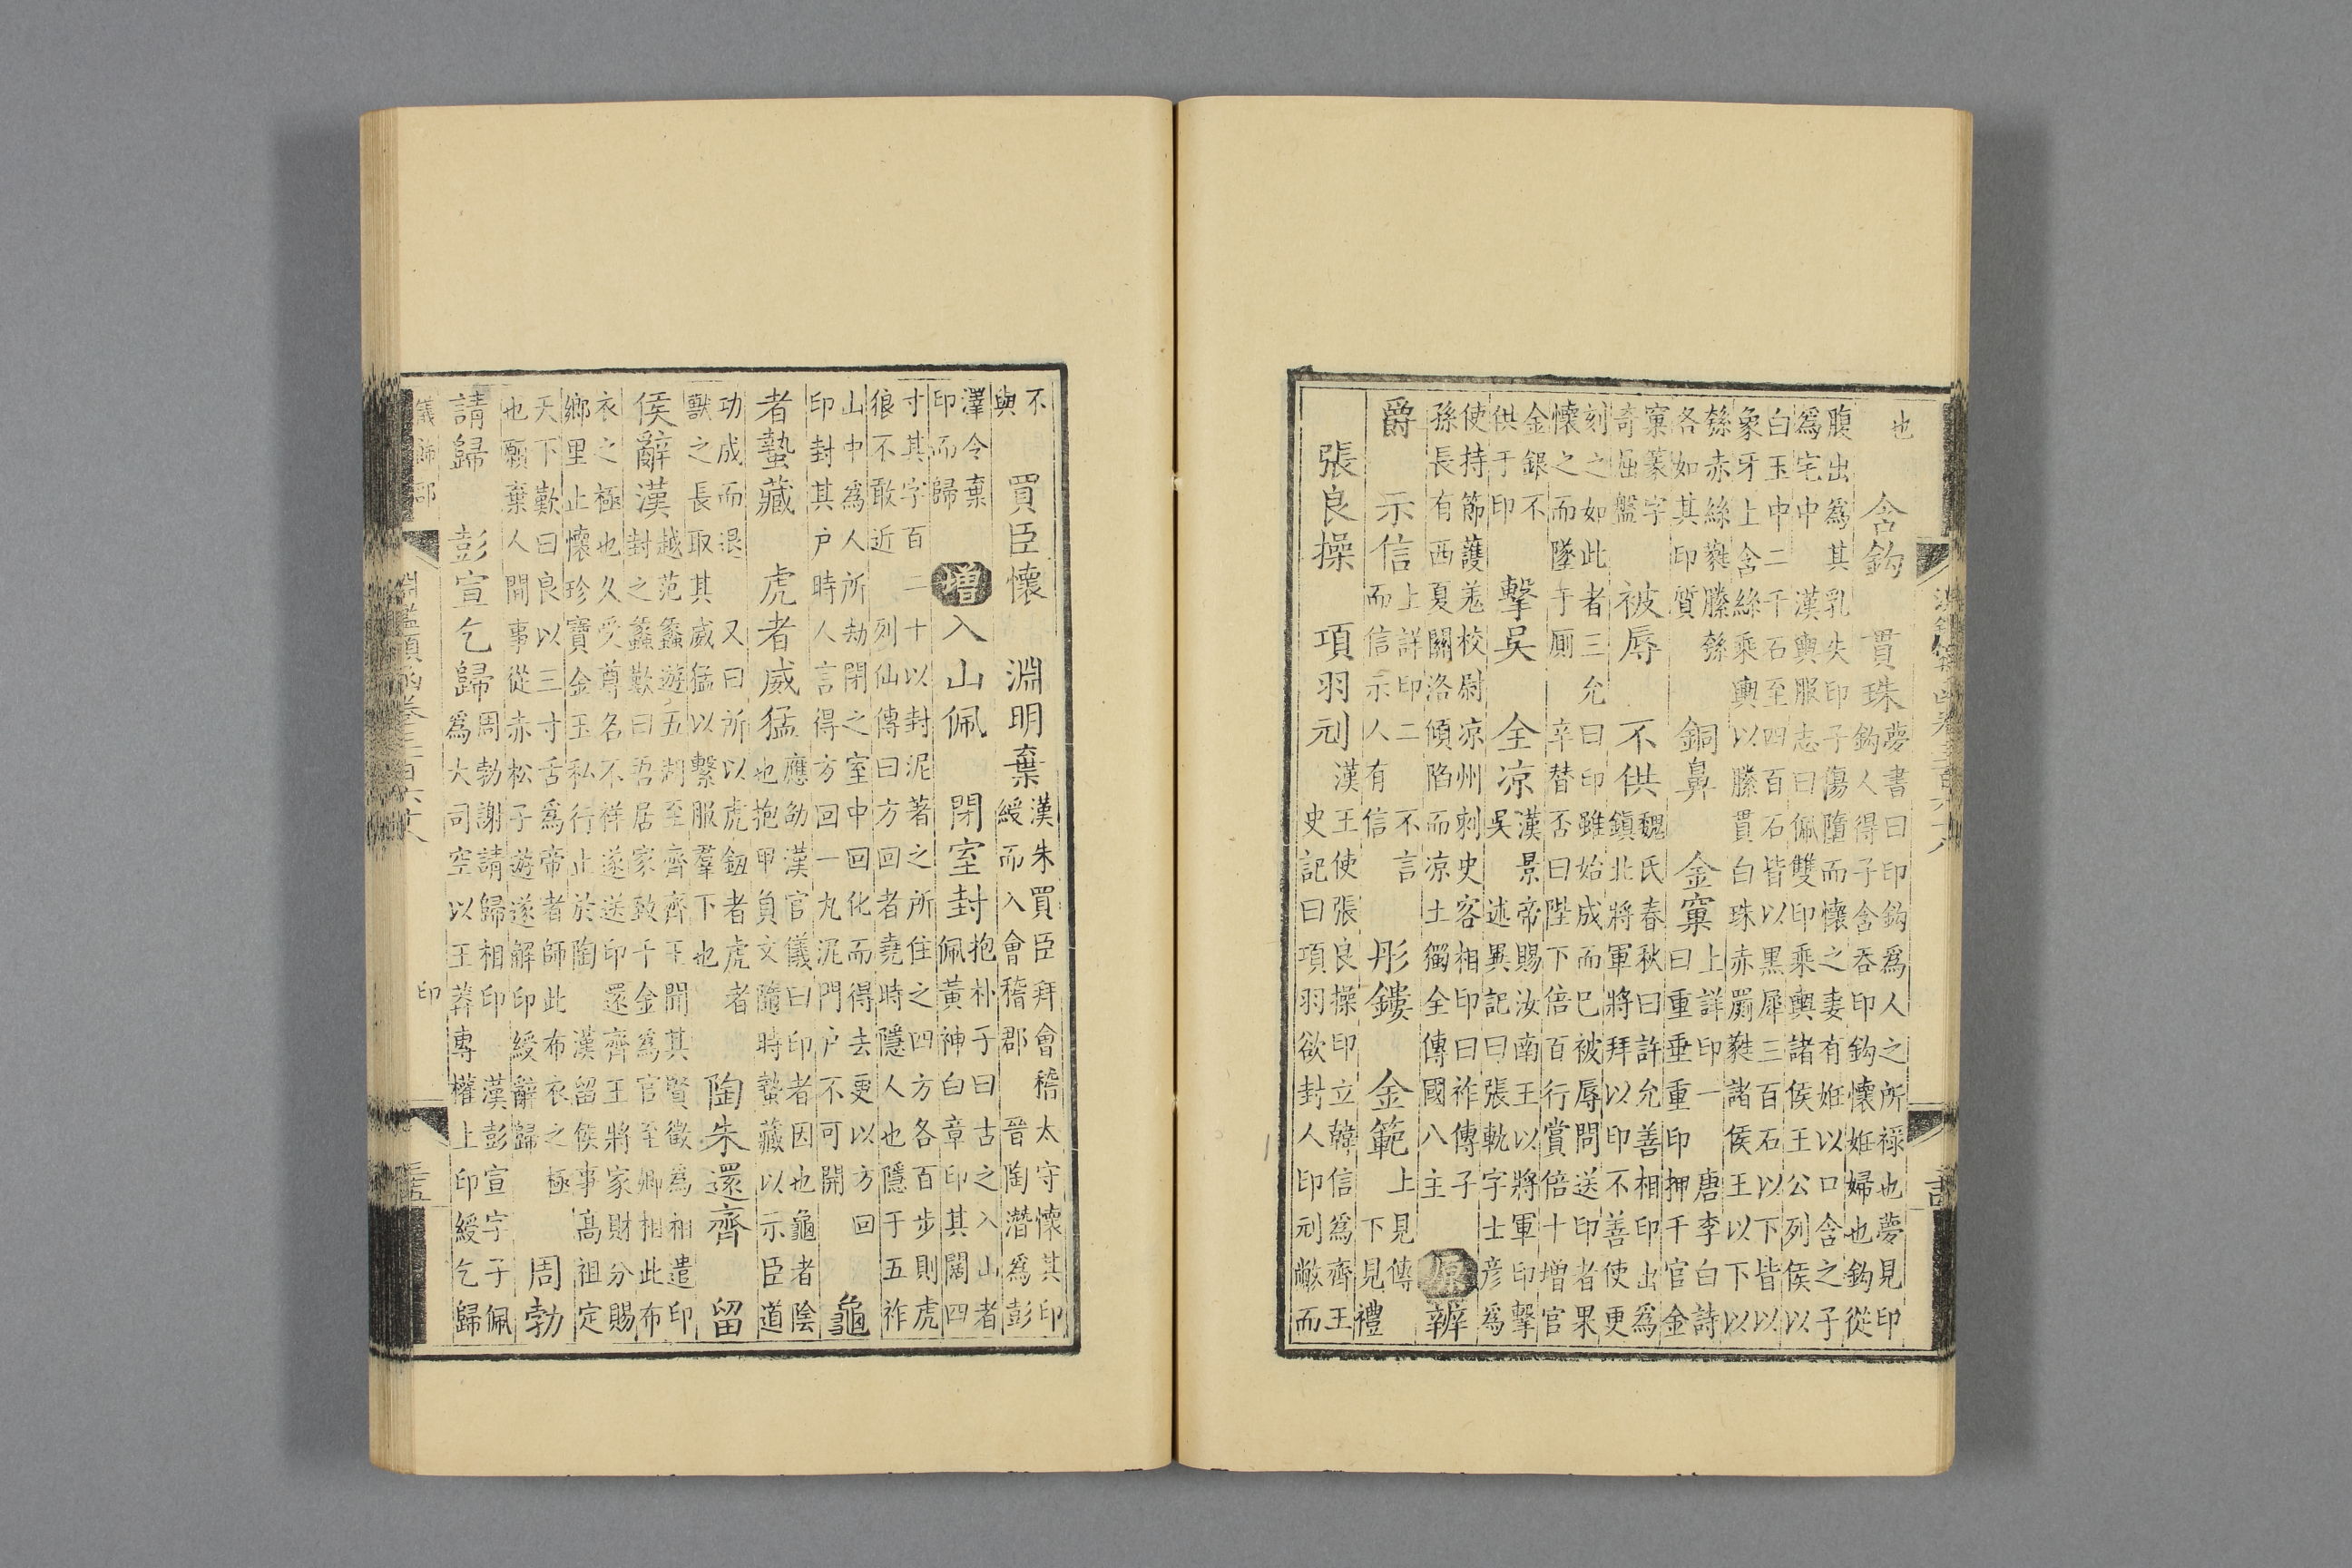 也
含鈎
貫珠
夢書曰印鈎爲人之所祿也夢見印
鈎人得子含吞印鈎懷姙婦也鈎從
腹出爲其乳失印子傷墮而懷之妻有姙以口含之子
爲宅中
漢輿服志曰佩雙印乘輿諸侯王公列侯以
白玉中二千石至四百石皆以黑犀三百石以下皆以
象牙上含絲乘輿以縢貫白珠赤罽蕤諸侯王以下以
綔赤絲蕤縢綔
各如其印質
銅鼻
金窠
上詳印一
曰重垂重印
唐李白詩
押千官金
窠篆字
奇屈盤
被辱
不供
魏氏春秋曰許允善相印出爲
鎮北將軍將拜以印不善使更
刻之如此者三允曰印雖始成而已被辱問送印者果
懷之而墜于厠
辛替否曰陛下倍百行賞倍十增官
金銀不
供于印
擊吳
全凉
漢景帝賜汝南王以將軍印擊
吳
述異記曰張軌字士彦爲
使持節護羌校尉凉州刺史客相印曰祚傳子
孫長有西夏關洛傾陷而凉土獨全傳國八主
原
辨
爵
示信
上詳印二
而信示人有信
不言
彤鏤
金範
上見傳
下見禮
張良操
項羽刓
漢王使張良操印立韓信爲齊王
史記曰項羽欲封人印刓敝而
不
與
買臣懷
淵明棄
漢朱買臣拜會稽太守懷其印
綬而入會稽郡
晉陶潛爲彭
澤令棄
印而歸
增
入山佩
閉室封
抱朴子曰古之入山者
佩黃神白章印其闊四
寸其字百二十以封泥著之所住之四方各百步則虎
狼不敢近
列仙傳曰方回者堯時隱人也隱于五祚
山中爲人所劫閉之室中回化而得去更以方回
印封其户時人言得方回一丸泥門户不可開
龜
者蟄藏
虎者威猛
應劭漢官儀曰印者因也龜者陰
也抱甲負文隨時蟄藏以示臣道
功成而退
又曰所以虎鈕者虎者
獸之長取其威猛以繫服羣下也
陶朱還齊
留
侯辭漢
越范蠡遊五湖至齊齊王聞其賢徵爲相遣印
封之蠡歎曰吾居家致千金爲官至卿相此布
衣之極也久受尊名不祥遂送印還齊王將家財分賜
鄉里止懷珍寶金玉私行止於陶
漢留侯事髙祖定
天下歎曰良以三寸舌爲帝者師此布衣之極
也願棄人間事從赤松子遊遂解印綬辭歸
周勃
請歸
彭宣乞歸
周勃謝請歸相印
漢彭宣字子佩
爲大司空以王莽專權上印綬乞歸
儀飾部
淵鑑類函卷三百六十八
印